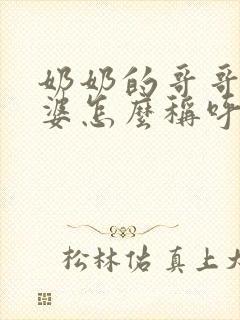 奶奶的哥哥
婆怎麼稱呼
松林佑真上大